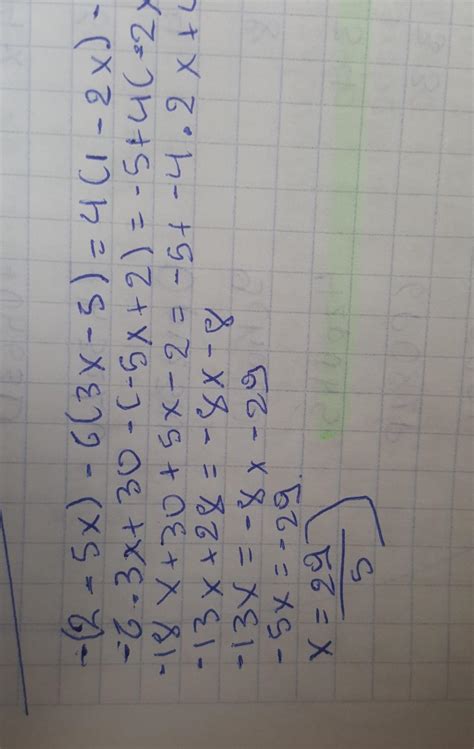 -(2-5x)-6(3x-5)=4(1-2x)-
-6.3x+30-(-5x+2)=-5+4(-2x
-18x+30+5x-2=-5+-4.2x+4
-13x+28=-8x-8
-13x=-8x-29
-5x=-29
x=29
5